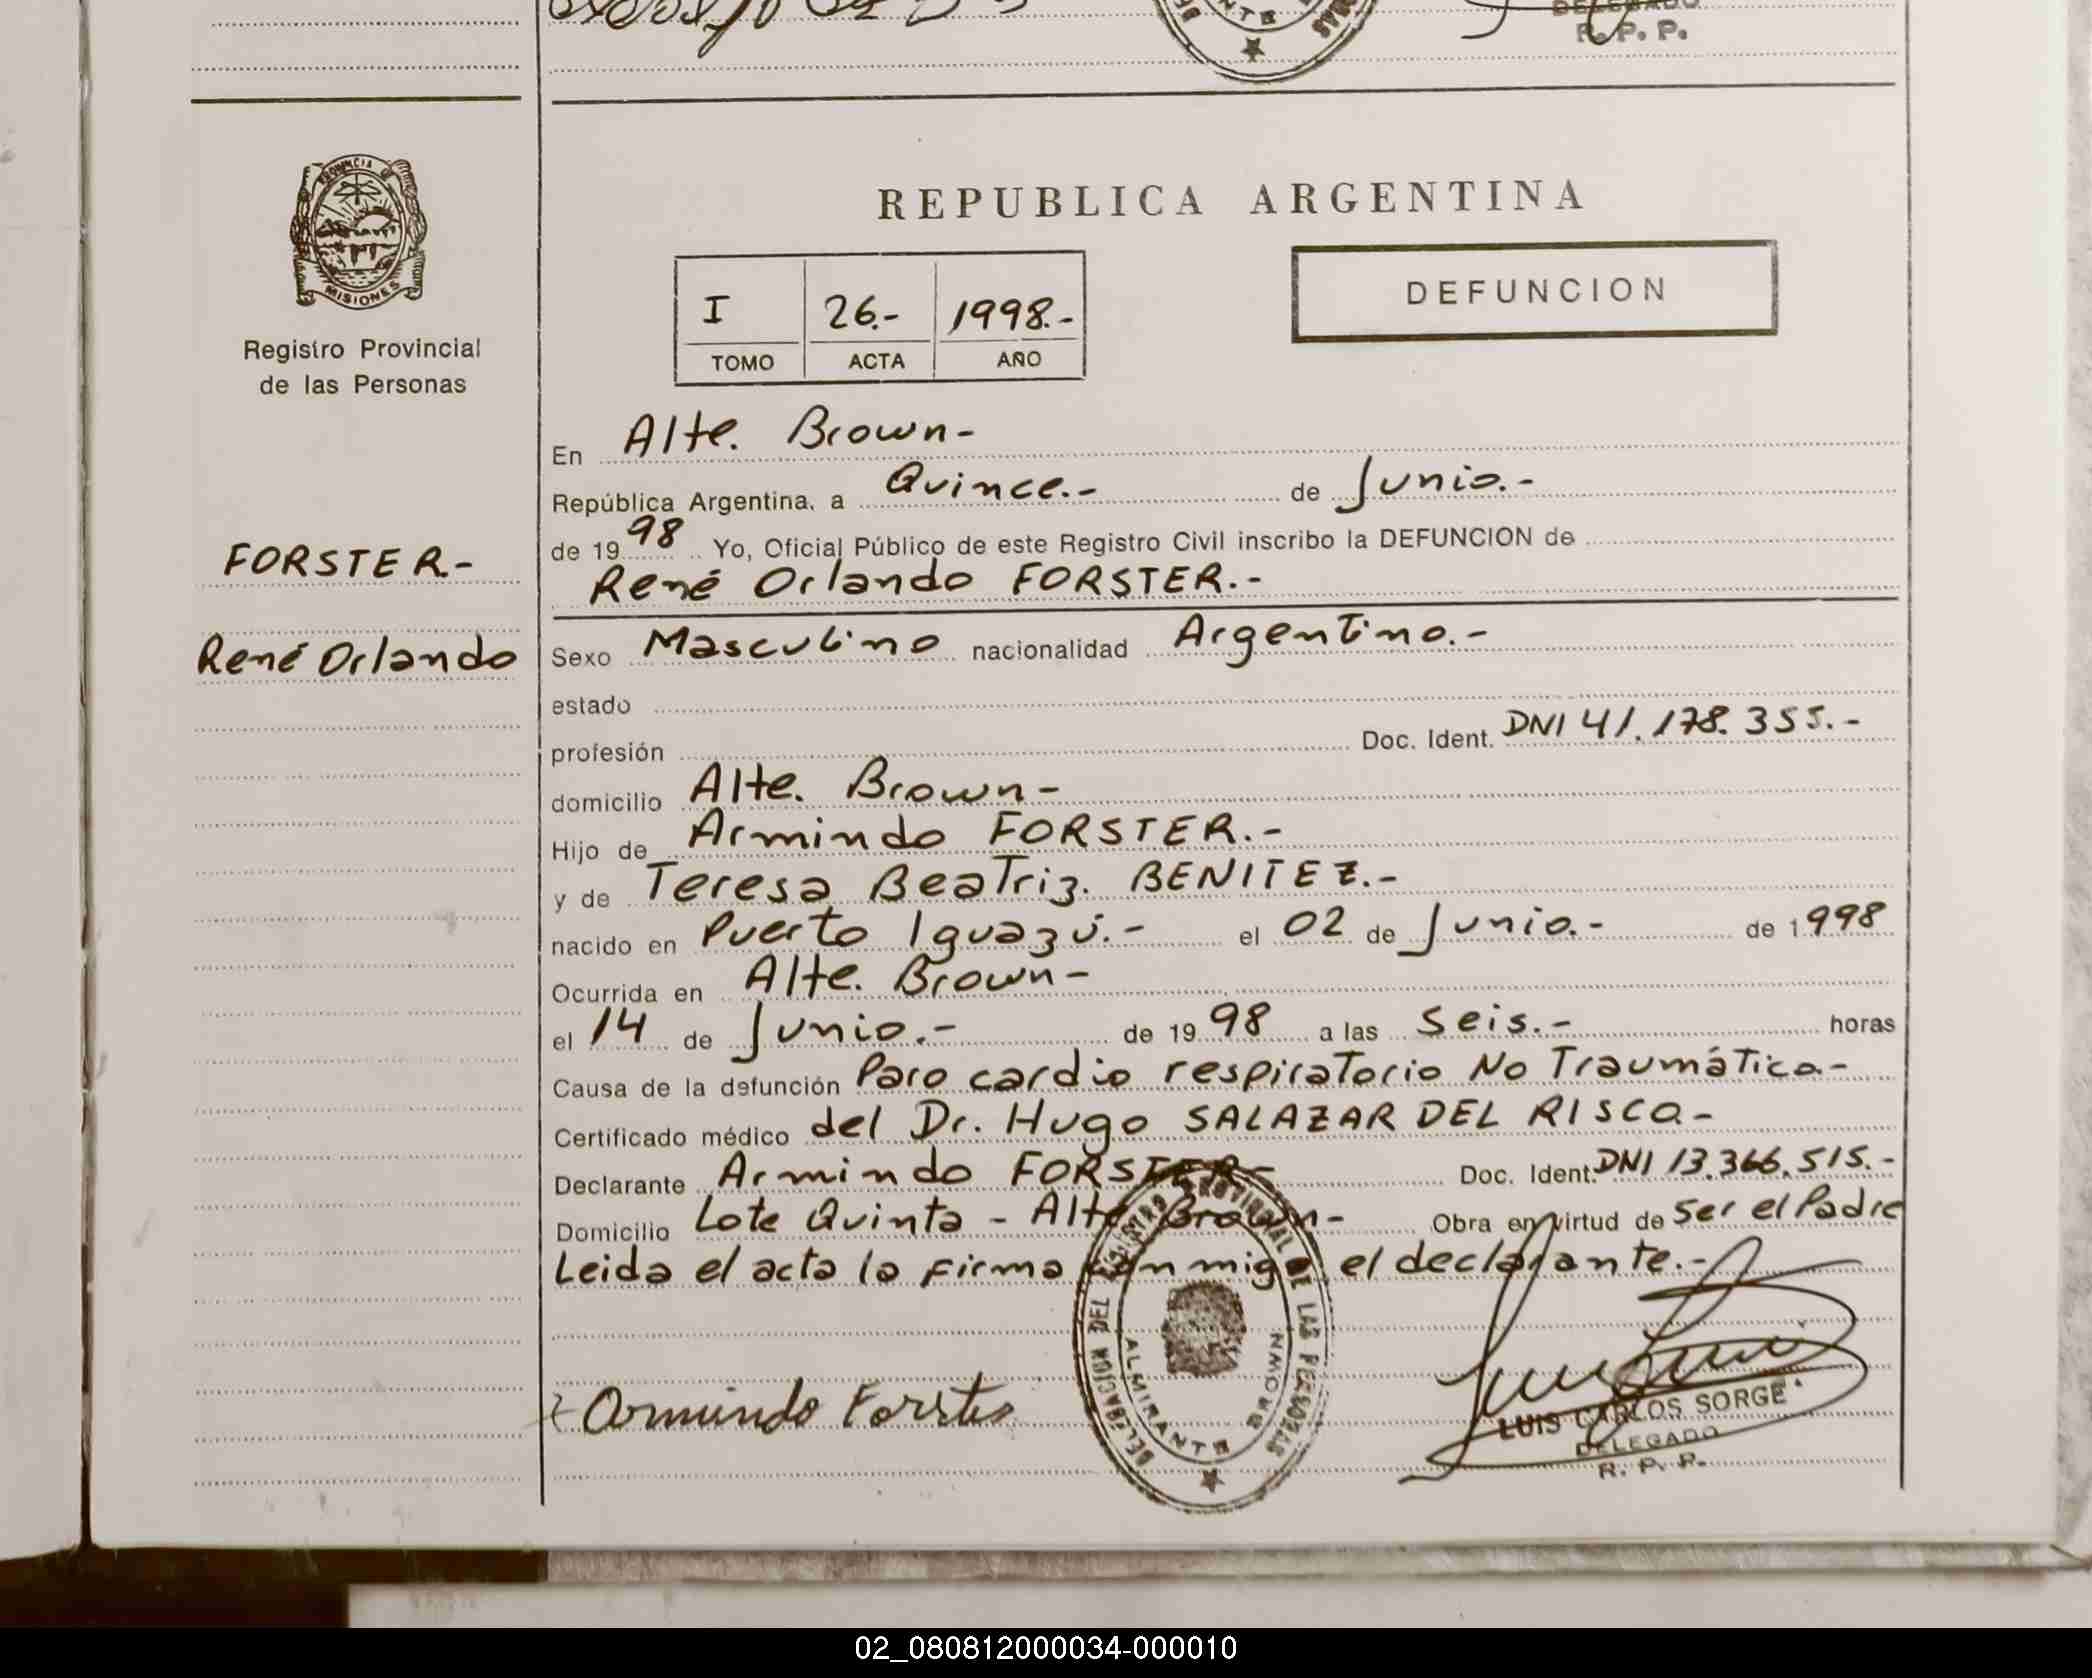 R. P. P.
PROVINCIA DE
MISIONES
Registro Provincial
de las Personas
REPUBLICA ARGENTINA
I 26.- 1998.-
TOMO ACTA AÑO
DEFUNCION
FORSTER.-
René Orlando
En Alte. Brown-
República Argentina, a Quince.- de Junio.-
de 1998 Yo, Oficial Público de este Registro Civil inscribo la DEFUNCION de
René Orlando FORSTER.-
Sexo Masculino nacionalidad Argentino.-
estado
profesión Doc. Ident. DNI 41.178.355.-
domicilio Alte. Brown-
Hijo de Armindo FORSTER.-
y de Teresa Beatriz. BENITEZ.-
nacido en Puerto Iguazú.- el 02 de Junio.- de 1998
Ocurrida en Alte. Brown-
el 14 de Junio.- de 1998 a las seis.- horas
Causa de la defunción Paro cardio respiratorio No Traumático.-
Certificado médico del Dr. Hugo SALAZAR DEL RISCO-
Declarante Armindo FORSTER- Doc. Ident. DNI 13.366.515.-
Domicilio Lote Quinta - Alte. Brown- Obra en virtud de ser el Padre
Leida el acta la firma conmigo el declarante.-
Armindo Forster
DELEGACION DEL REGISTRO PROVINCIAL DE LAS PERSONAS
ALMIRANTE BROWN
LUIS CARLOS SORGE
DELEGADO
R. P. P.
02_080812000034-000010